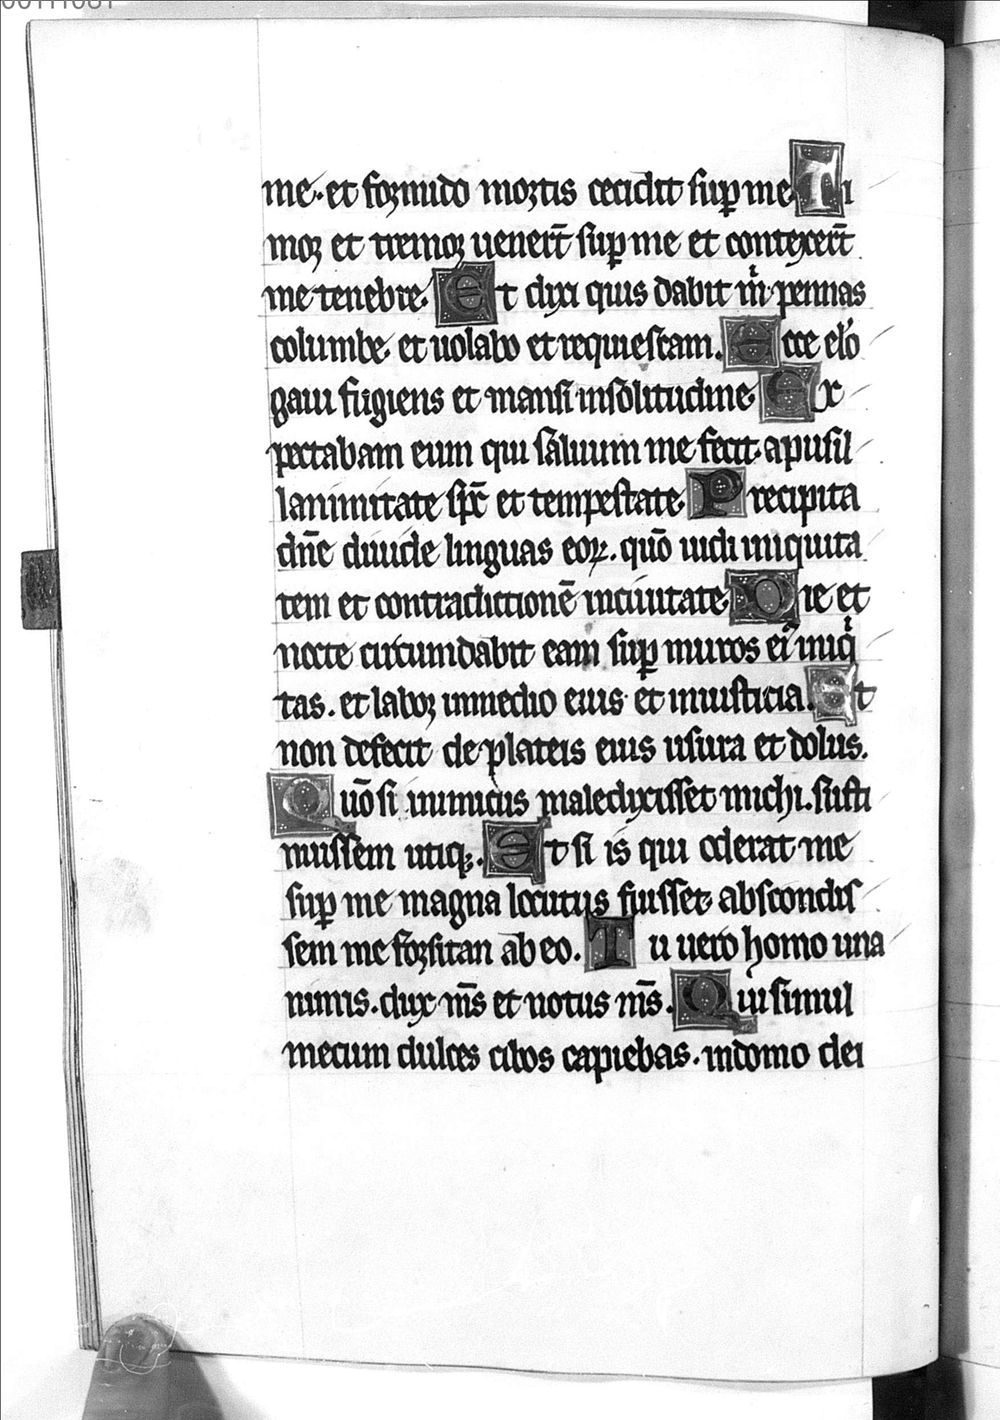 me. et formido mortis cecidit sup̱ me. Ti
mor et tremor uener̄t sup̱ me et contexer̄t
me tenebre. Et dixi quis dabit m̍ pennas
columbe. et uolabo et requiescam. Ecce elo
gaui fugiens et mansi insolitudine. Ex
pectabam eum qui saluum me fecit. apusil
lanimitate sp̄c et tempestate. Precipita
dn̄e diuide linguas eoꝝ. qūo uidi iniquita
tem et contradictionē inciuitate. Die et
nocte circumdabit eam sup̱ muros ei᷒ iniq̍
tas. et labor inmedio eius et iniusticia. Et
non defecit de plateis eius usura et dolus.
Qūo si inimicus maledixisset michi. susti
nuissem utiqꝫ. Et si is qui oderat me
sup̱ me magna locutus fuisset. abscondis
sem me forsitan ab eo. Tu uero homo una
nimis. dux m̄s et notus m̄s. Qui simul
mecum dulces cibos capiebas. indomo dei